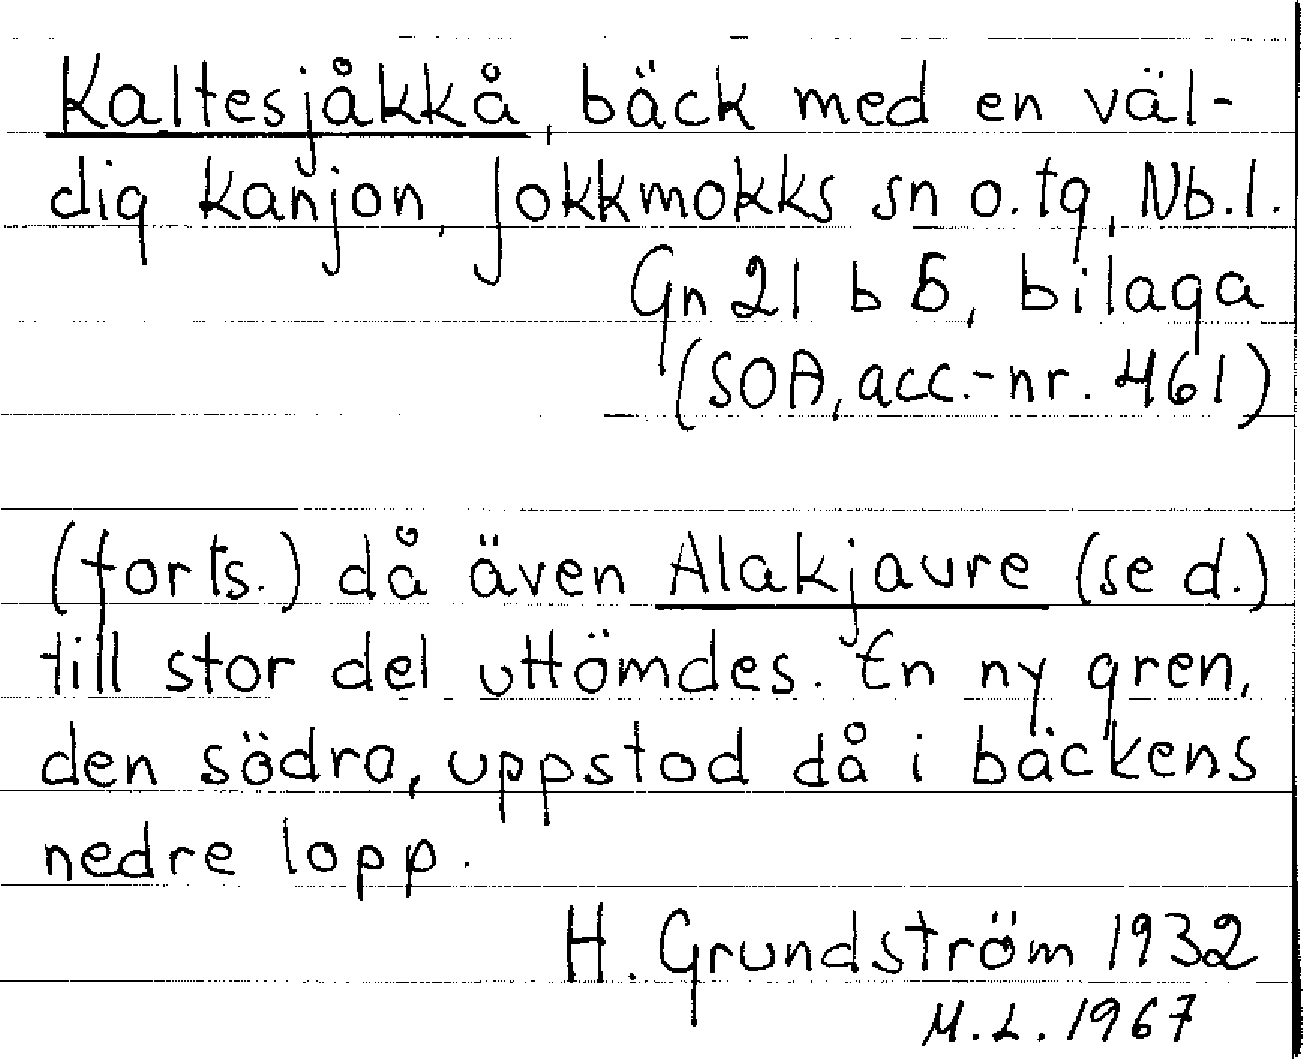 Kaltesjåkkå, bäck med en väl-
dig kanjon, Jokkmokks sn o. tg, Nb.l.
Gn 21 b 5, bilaga
(SOA, acc.-nr. 461)
(forts.) då även Alakjaure (se d.)
till stor del uttömdes. En ny gren,
den södra, uppstod då i bäckens
nedre lopp.
H. Grundström 1932
M.L. 1967